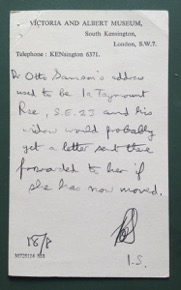 VICTORIA AND ALBERT MUSEUM,
South Kensington,
London, S.W.7.
Telephone : KENsington 6371.
Dr Otto Samson's address
used to be 1a Taymount
Rise, S.E.23 and his
widow would probably
get a letter sent there
forwarded to her if
she has now moved.
18/8
I.S.